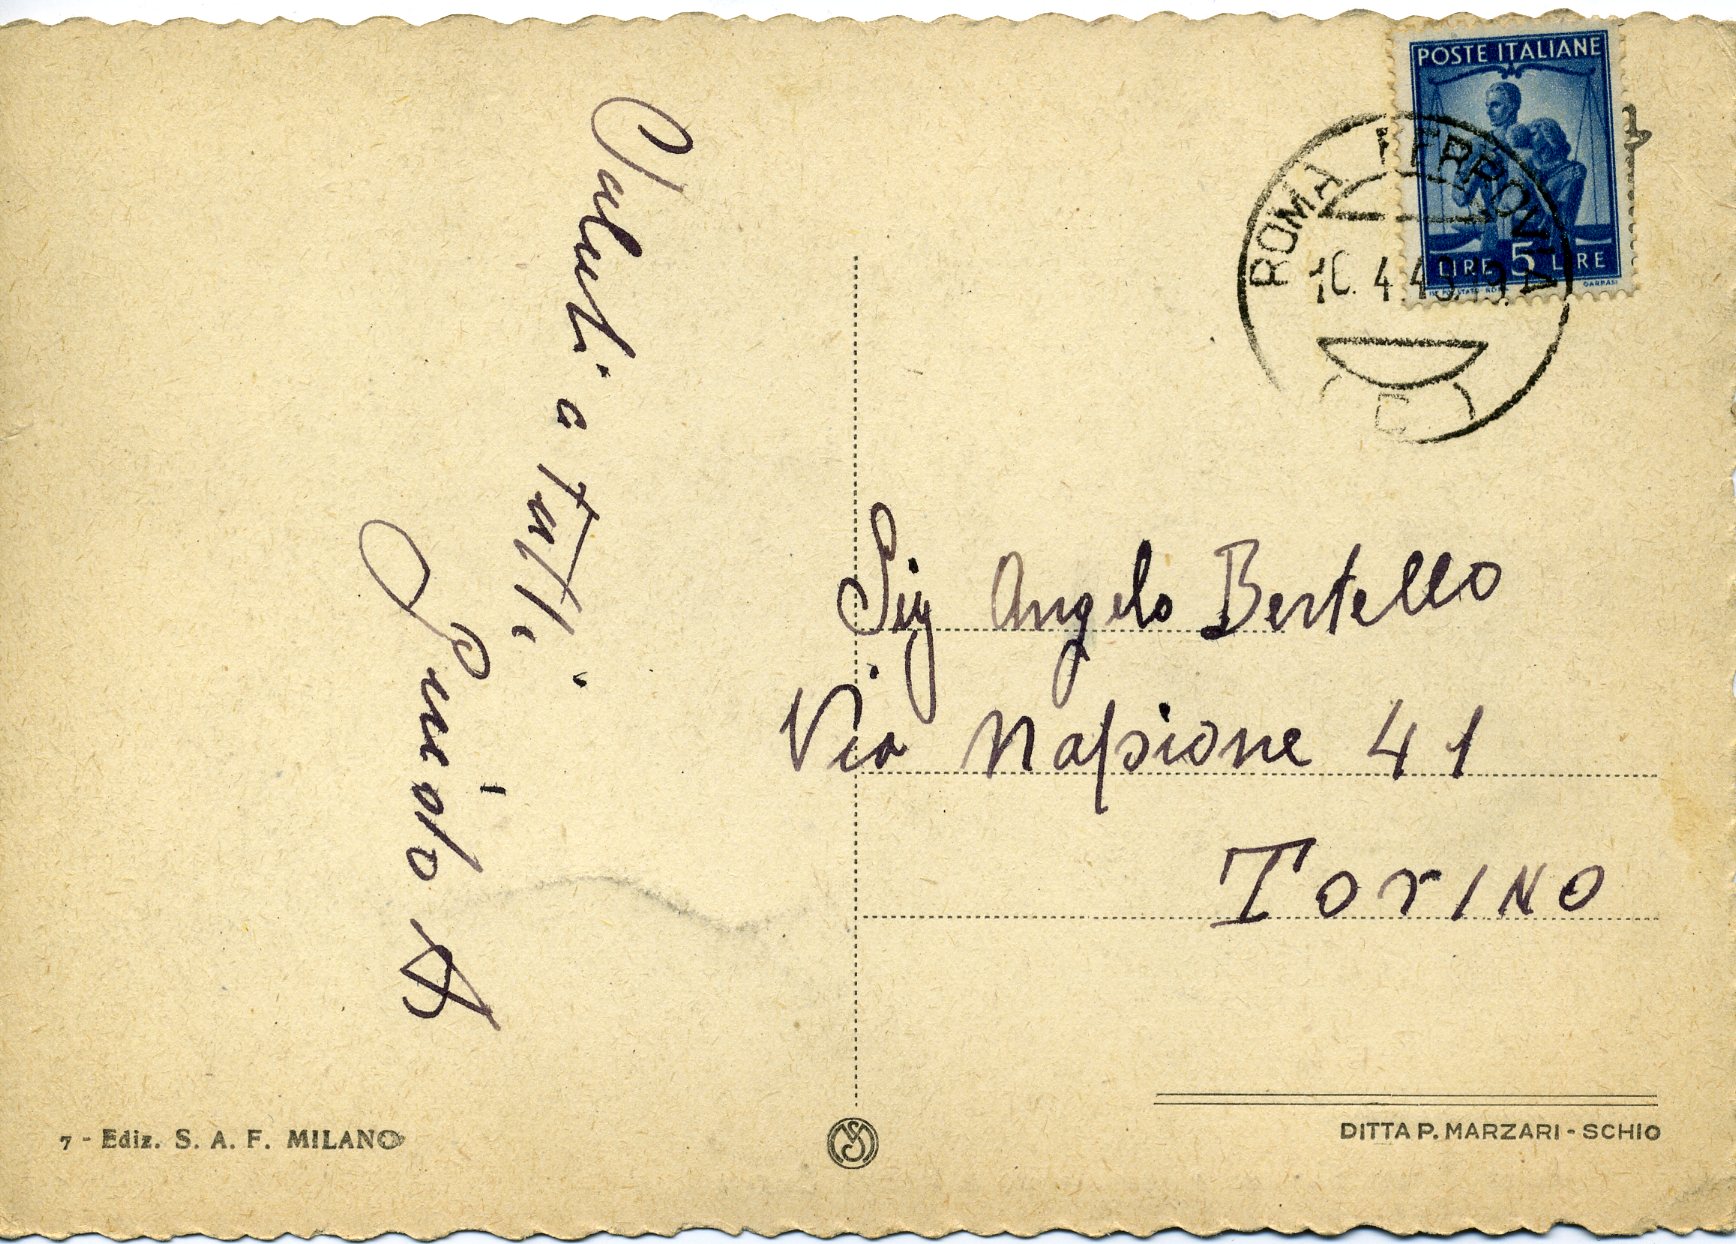 Saluti a tutti
Guido A
POSTE ITALIANE
LIRE 5 LIRE
ROMA FERROVIA
10. 4. 19.
Sig Angelo Bertello
Via Nassione 41
TORINO
7 - Ediz. S. A. F. MILANO
DITTA P. MARZARI - SCHIO